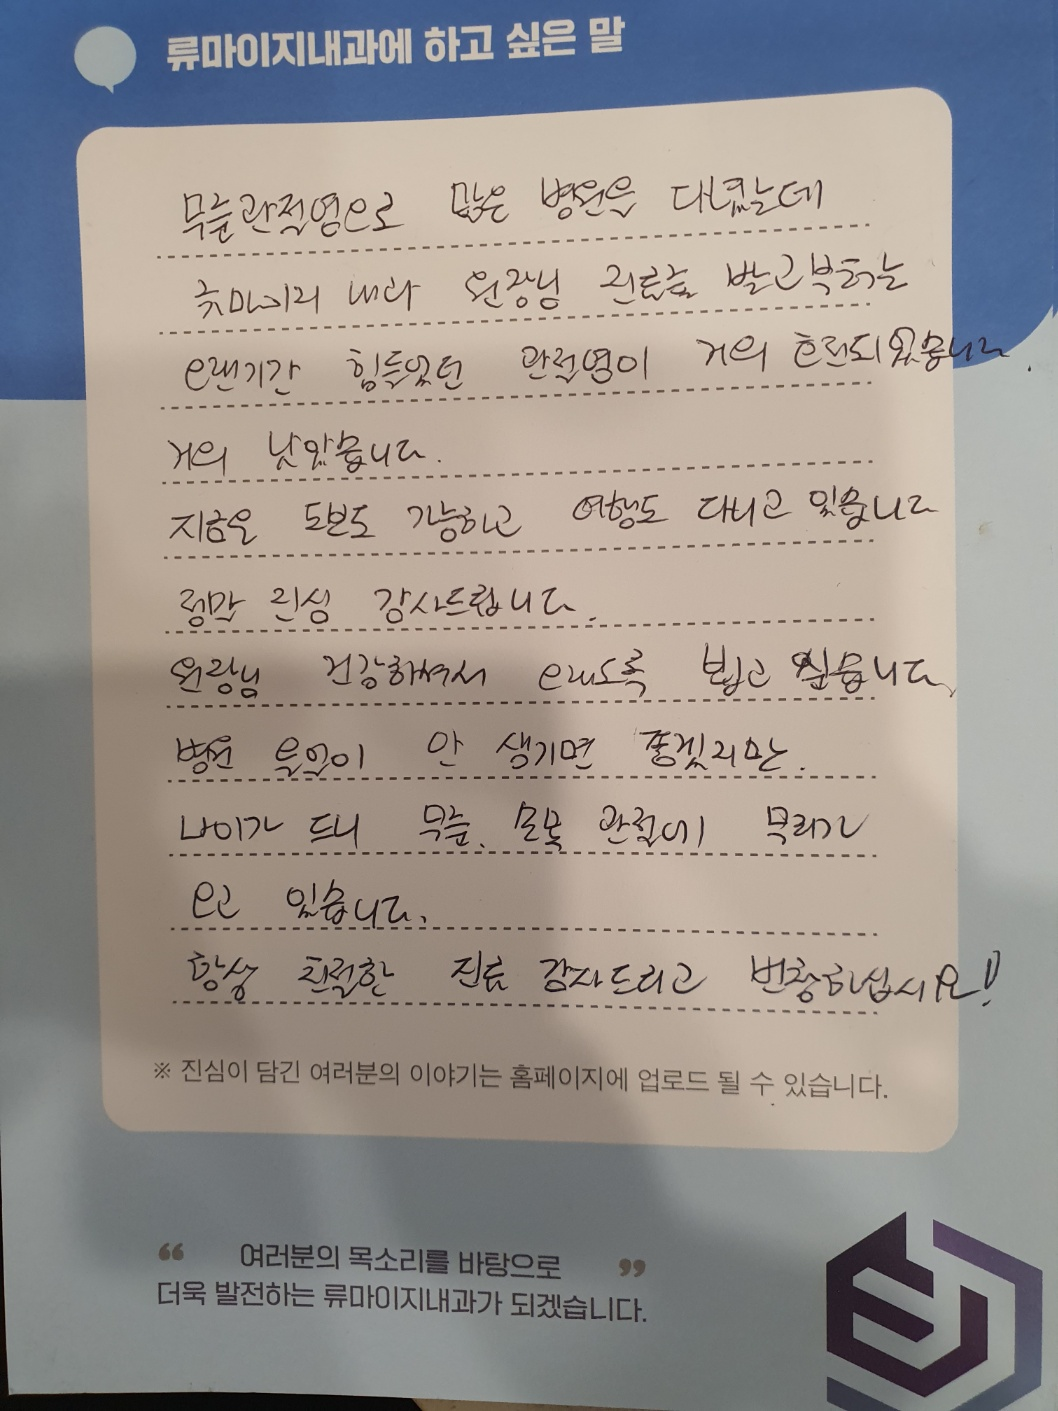 류마이지내과에 하고 싶은 말
무릎관절염으로 많은 병원을 다녔는데
류마이지 내과 원장님 진료를 받고부터는
오랜기간 힘들었던 관절염이 거의 호전되었습니다.
거의 낫았습니다.
지금은 도보도 가능하고 여행도 다니고 있습니다
정말 진심 감사드립니다.
원장님 건강하셔서 오래도록 뵙고 싶습니다.
병원 올일이 안 생기면 좋겠지만.
나이가 드니 무릎. 모목 관절에 무리가
오고 있습니다.
항상 친절한 진료 감사드리고 번창하십시요!!
※ 진심이 담긴 여러분의 이야기는 홈페이지에 업로드 될 수 있습니다.
“ 여러분의 목소리를 바탕으로 ”
더욱 발전하는 류마이지내과가 되겠습니다.